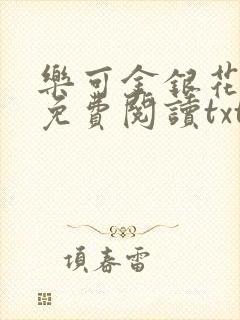 樂可金銀花
免費閱讀txt
項春雷